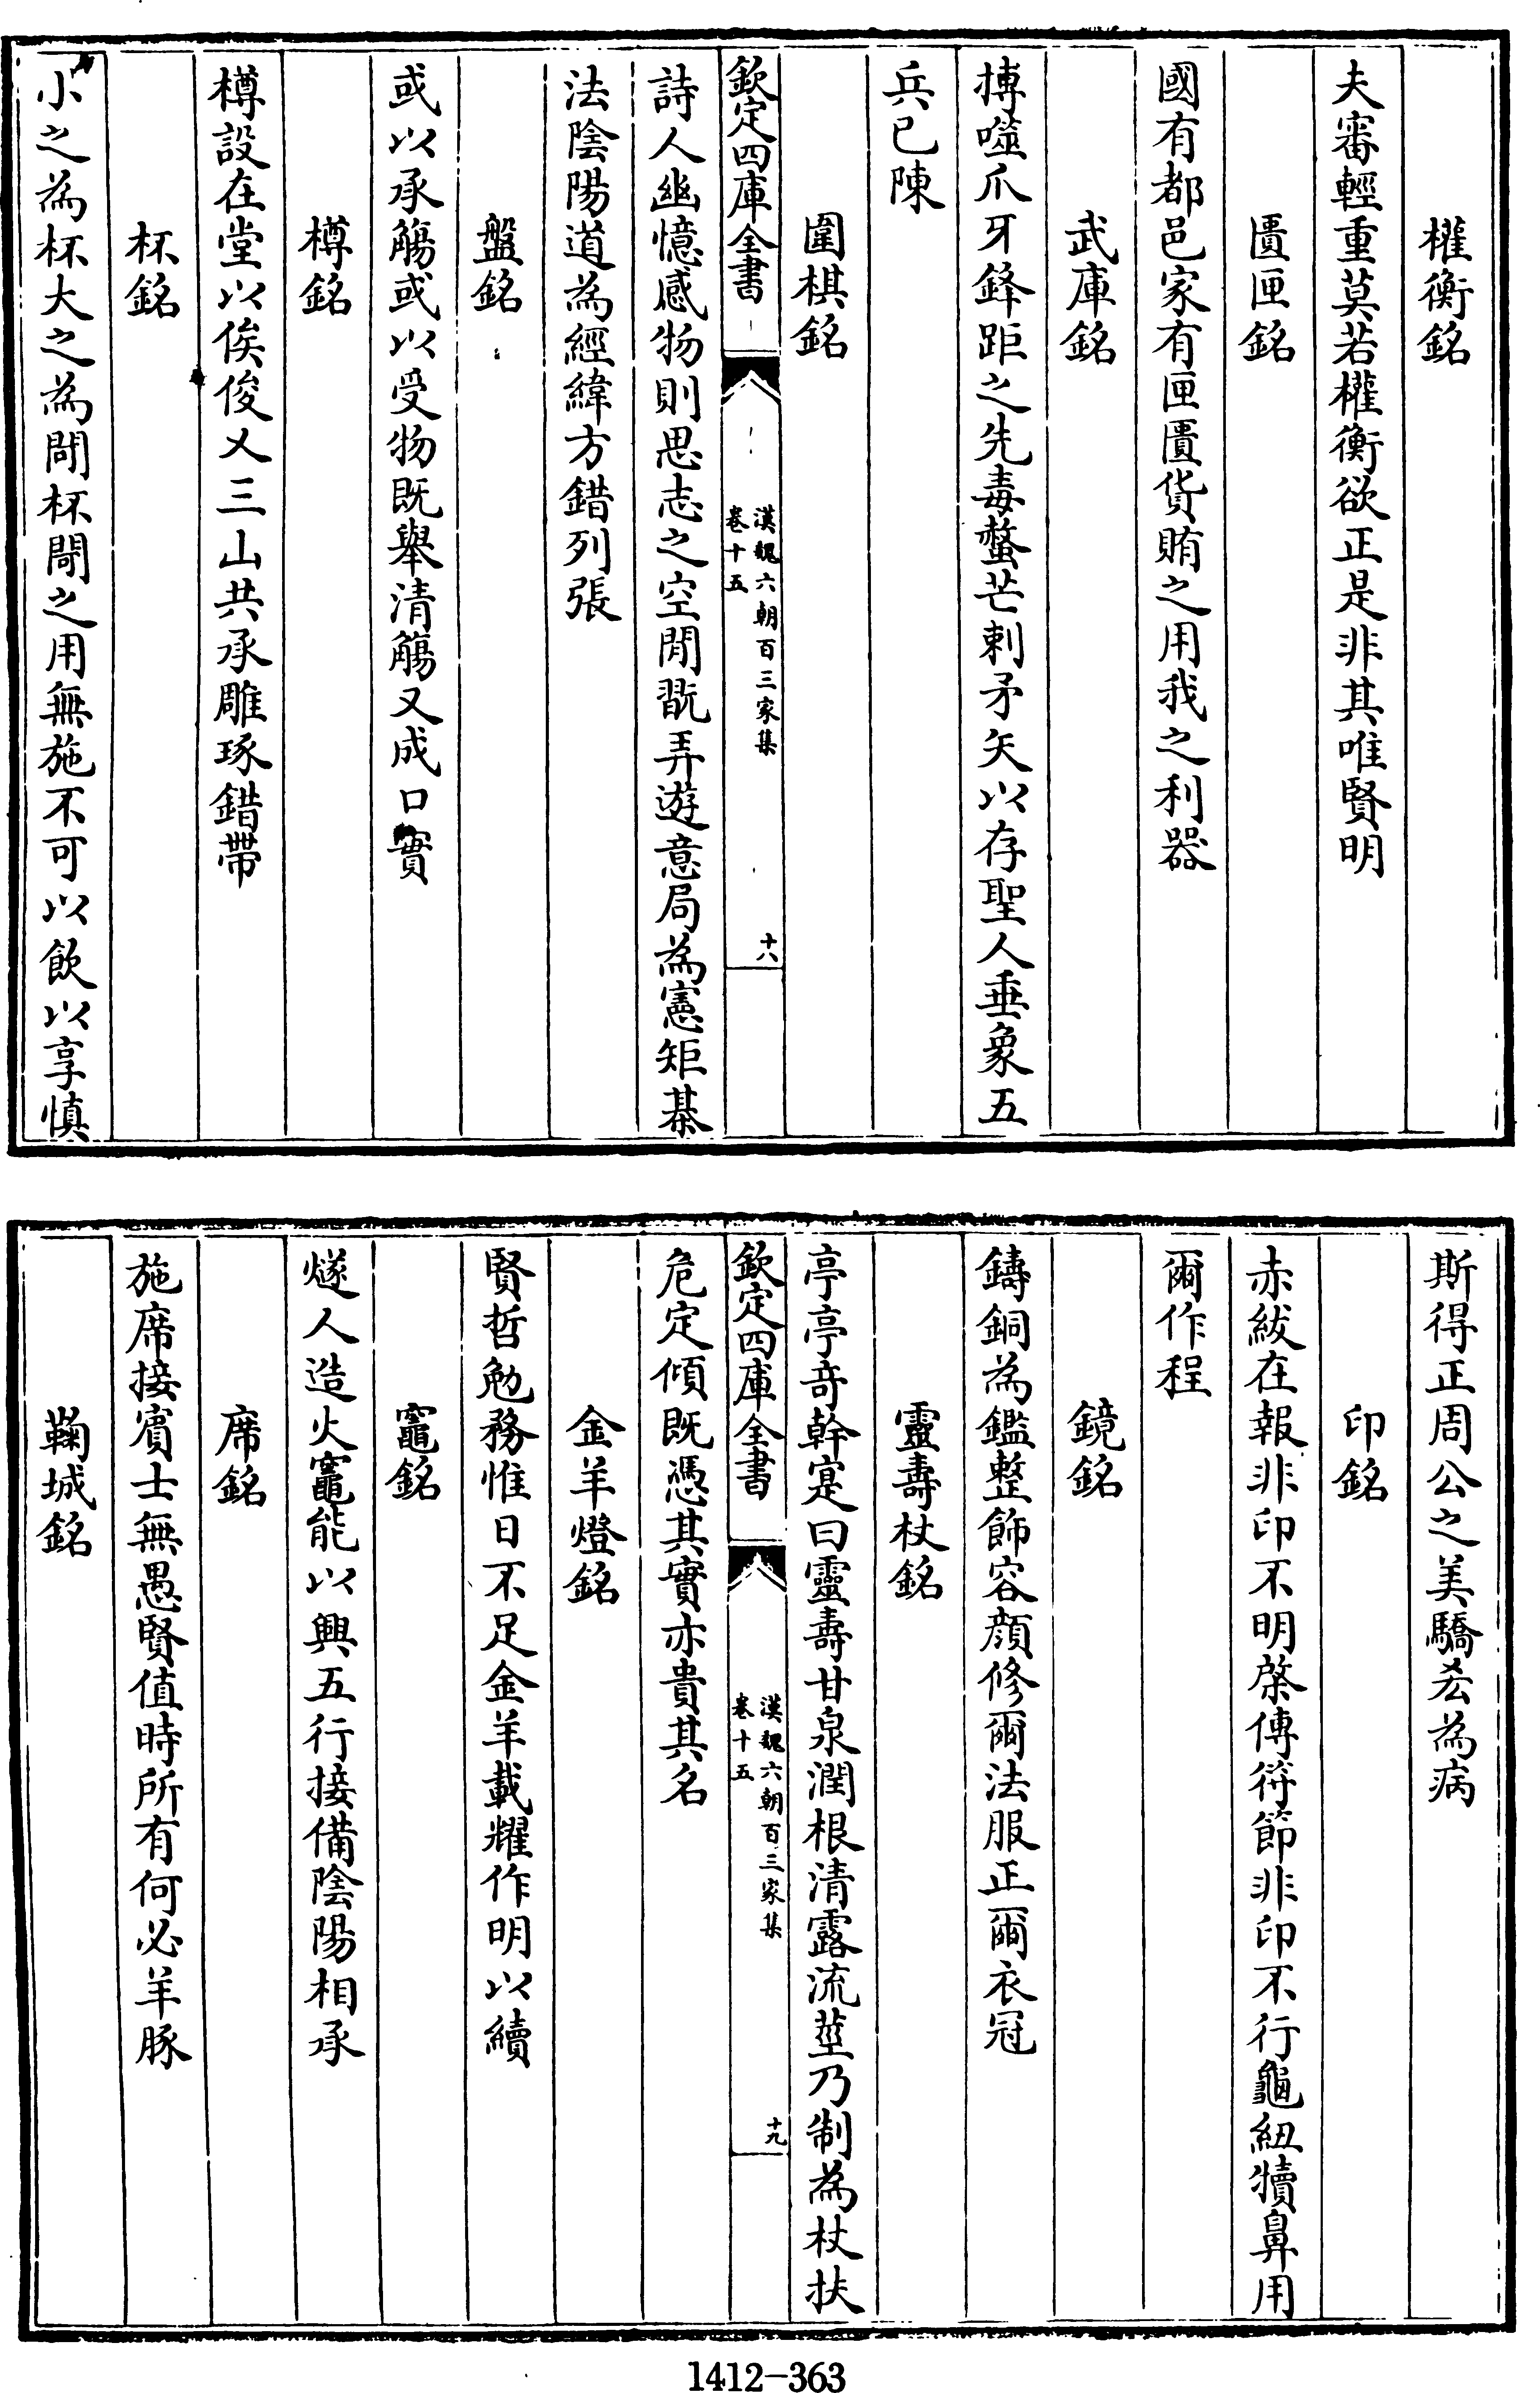 權衡銘
夫審輕重莫若權衡欲正是非其唯賢明
匱匣銘
國有都邑家有匣匱貨賄之用我之利器
武庫銘
搏噬爪牙鋒距之先毒螫芒刺矛矢以存聖人垂象五
兵已陳
圍棋銘
欽定四庫全書
漢魏六朝百三家集
卷十五
十八
詩人幽憶感物則思志之空閒翫弄遊意局為憲矩棊
法陰陽道為經緯方錯列張
盤銘
或以承觴或以受物既舉清觴又成口實
樽銘
樽設在堂以俟俊乂三山共承雕琢錯帶
杯銘
小之為杯大之為閜杯閜之用無施不可以飲以享慎
斯得正周公之美驕㳒為病
印銘
赤紱在報非印不明棨傳符節非印不行龜紐犢鼻用
爾作程
鏡銘
鑄銅為鑑整飾容顏修爾法服正爾衣冠
靈壽杖銘
亭亭奇幹寔曰靈壽甘泉潤根清露流莖乃制為杖扶
欽定四庫全書
漢魏六朝百三家集
卷十五
十九
危定傾既憑其實亦貴其名
金羊燈銘
賢哲勉務惟日不足金羊載耀作明以續
竈銘
燧人造火竈能以興五行接備陰陽相承
席銘
施席接賓士無愚賢值時所有何必羊豚
鞠城銘
1412-363